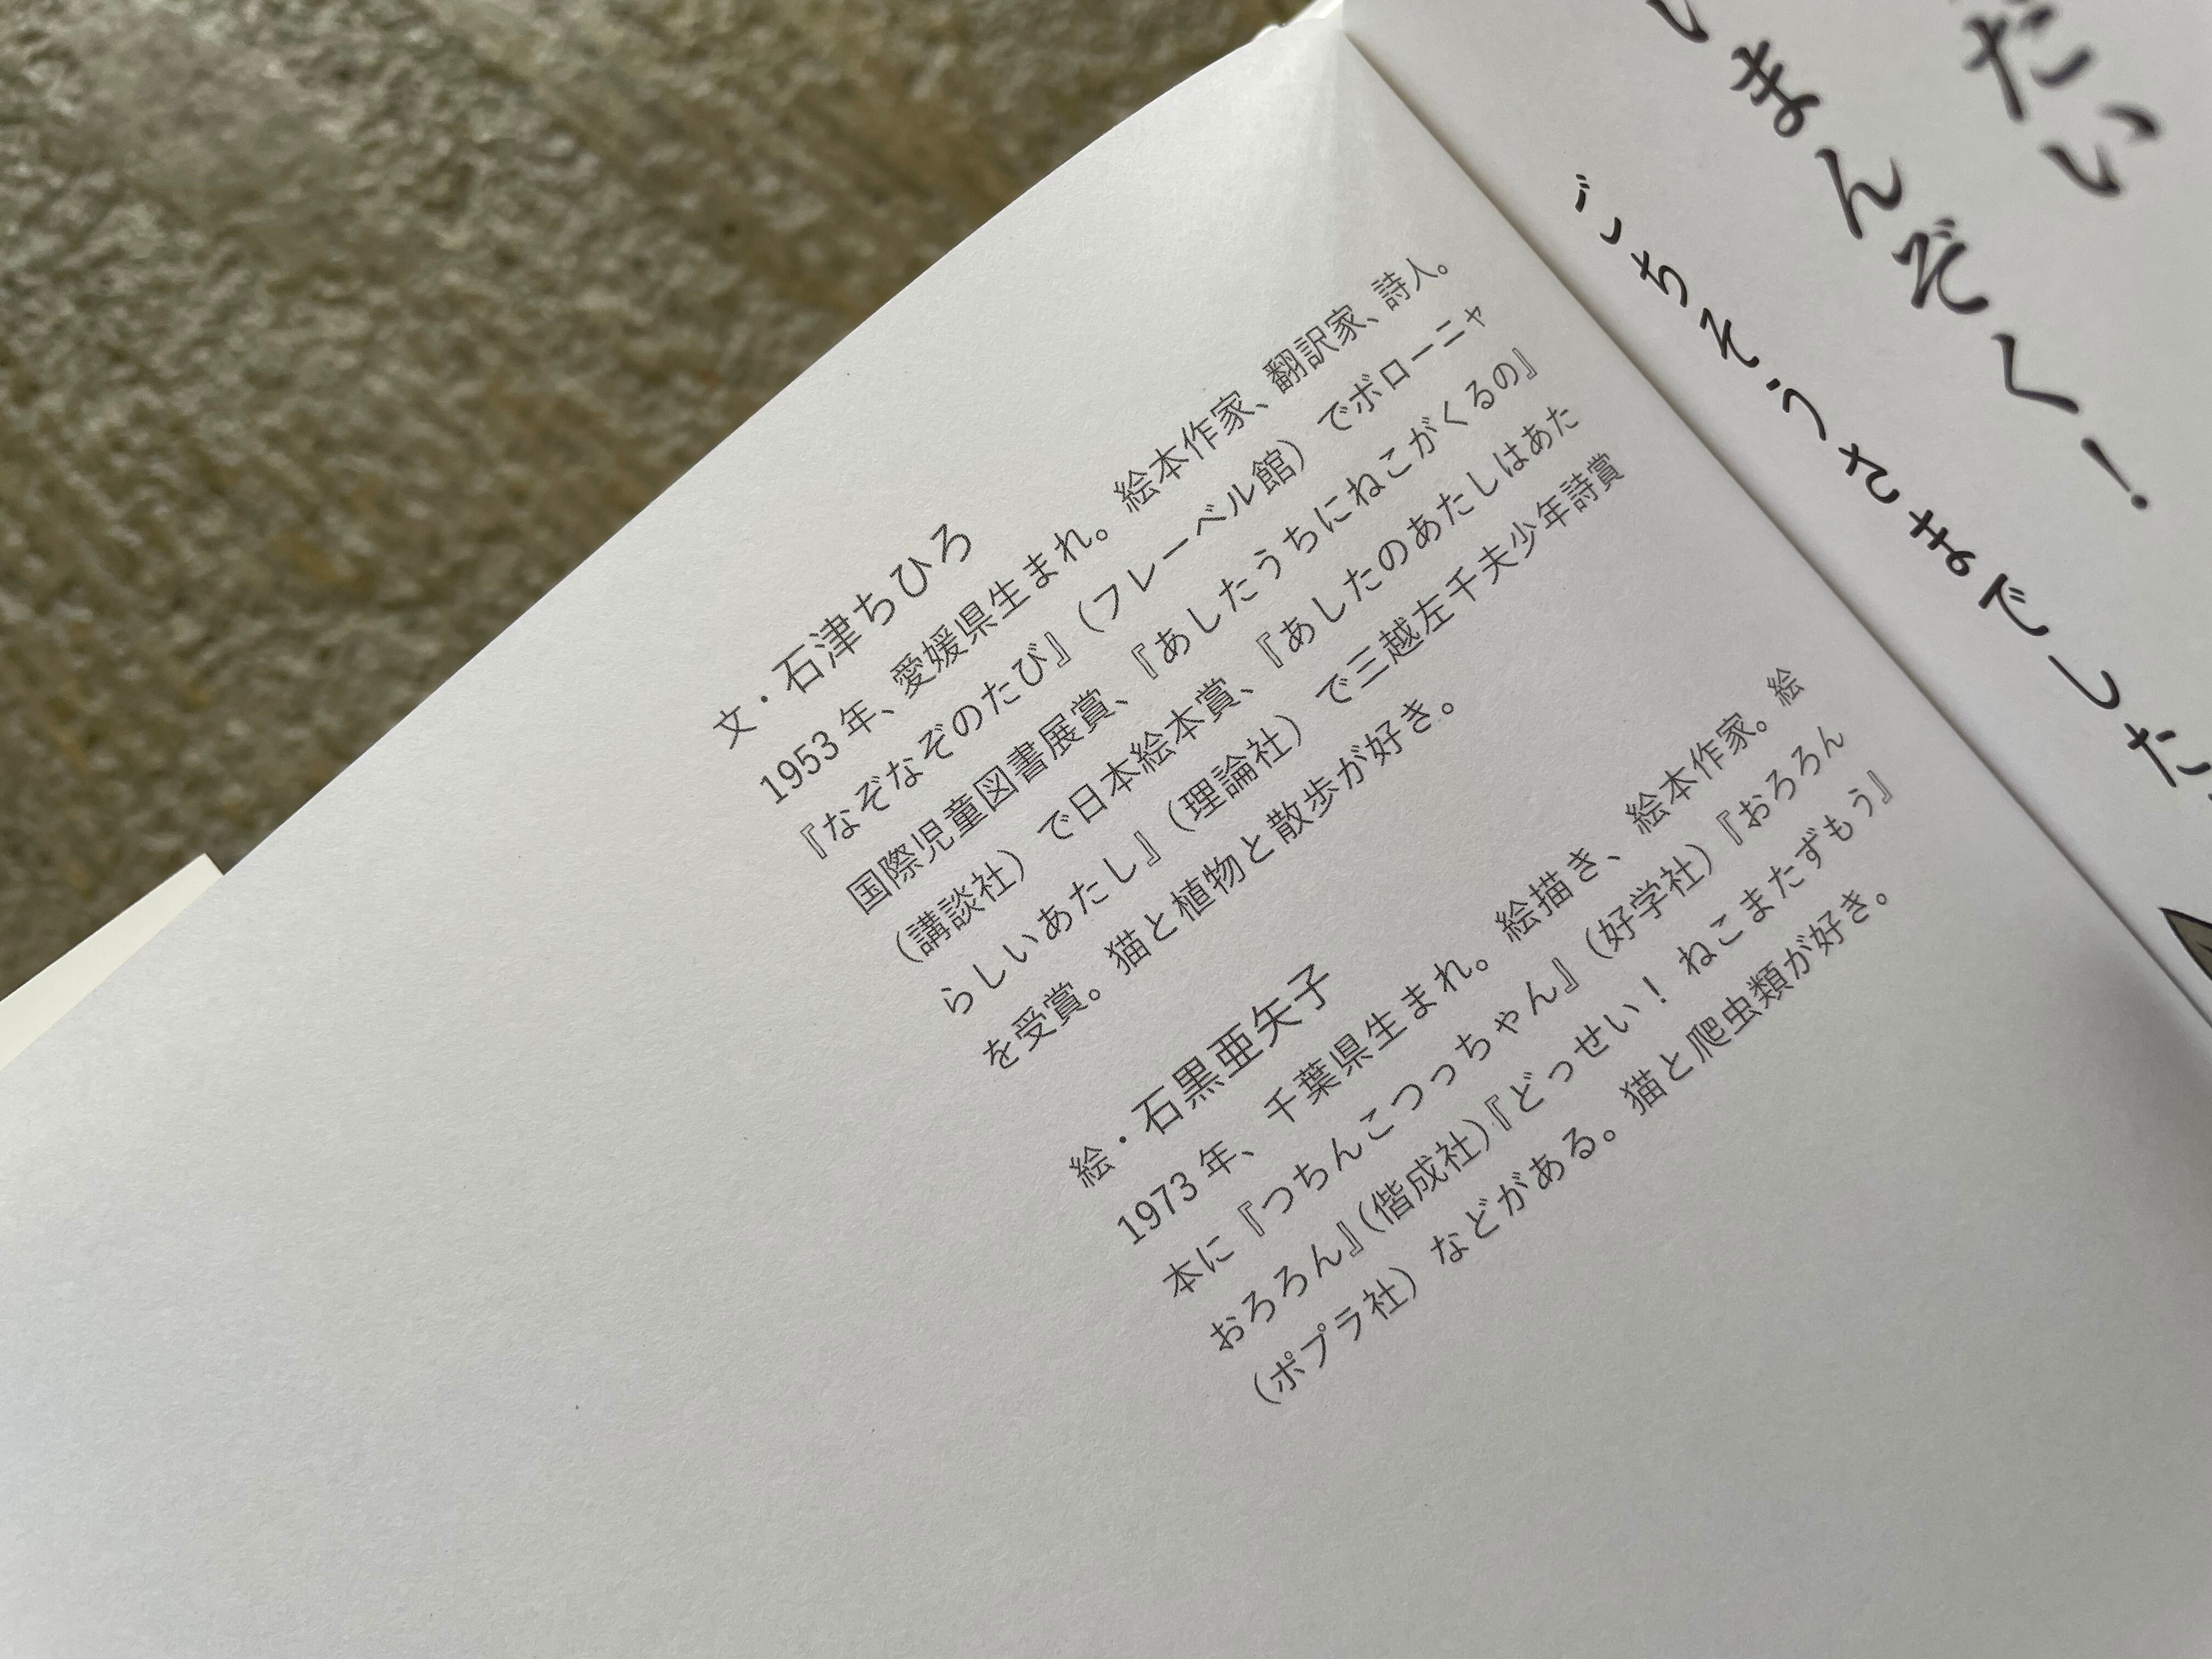 文・石津ちひろ
1953 年、愛媛県生まれ。絵本作家、翻訳家、詩人。
『なぞなぞのたび』（フレーベル館）でボローニャ
国際児童図書展賞、『あしたうちにねこがくるの』
（講談社）で日本絵本賞、『あしたのあたしはあた
らしいあたし』（理論社）で三越左千夫少年詩賞
を受賞。猫と植物と散歩が好き。
絵・石黒亜矢子
1973 年、千葉県生まれ。絵描き、絵本作家。絵
本に『つちんこつっちゃん』（好学社）『おろろん
おろろん』（偕成社）『どっせい！ ねこまたずもう』
（ポプラ社）などがある。猫と爬虫類が好き。
だい
まんぞく！
ごちそうさまでした